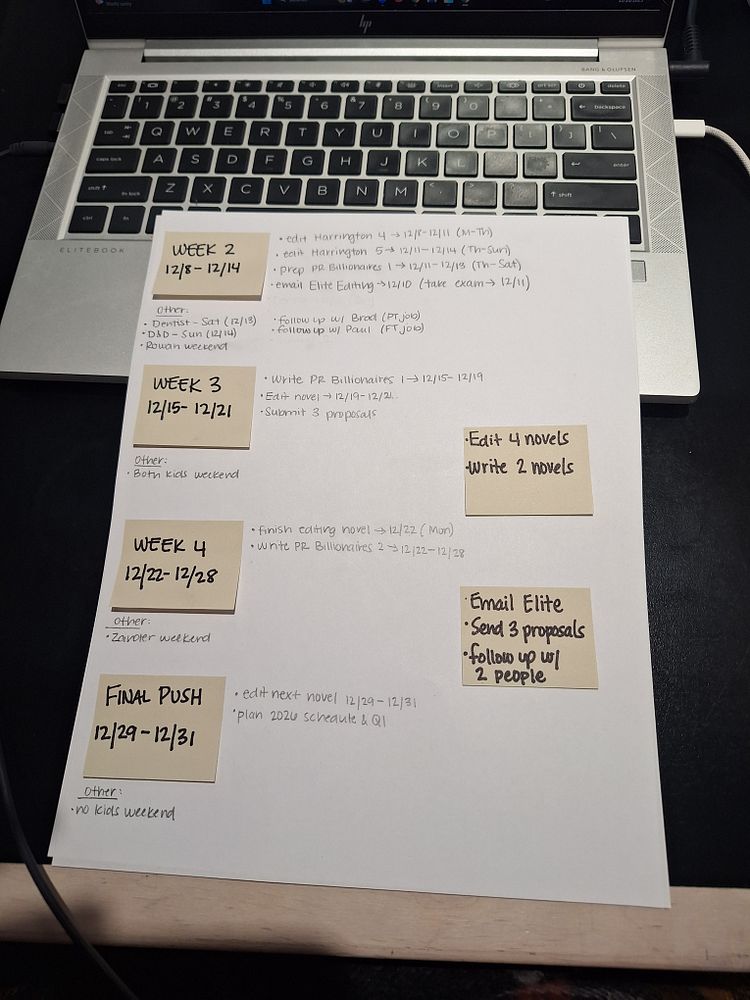 hp
BANG & OLUFSEN
esc
insert
prt scr
delete
1 2 3 4 5 6 7 8 9 0
backspace
tab Q W E R T Y U I O P [ ] \
caps lock A S D F G H J K L enter
shift fn lock Z X C V B N M shift
ctrl fn
ELITEBOOK
WEEK 2
12/8 - 12/14
• edit Harrington 4 → 12/8-12/11 (M-Th)
• edit Harrington 5 → 12/11-12/14 (Th-Sun)
• prep PR Billionaires 1 → 12/11-12/13 (Th-Sat)
• email Elite Editing → 12/10 (take exam → 12/11)
Other:
• Dentist - Sat (12/13)
• D&D - Sun (12/14)
• Rowan weekend
• follow up w/ Brad (PT job)
• follow up w/ Paul (FT job)
WEEK 3
12/15 - 12/21
• Write PR Billionaires 1 → 12/15-12/19
• Edit novel → 12/19-12/21
• Submit 3 proposals
Other:
• Both kids weekend
• Edit 4 novels
• Write 2 novels
WEEK 4
12/22 - 12/28
• finish editing novel → 12/22 (Mon)
• Write PR Billionaires 2 → 12/22-12/28
Other:
• Zander weekend
• Email Elite
• Send 3 proposals
• follow up w/
2 people
FINAL PUSH
12/29 - 12/31
• edit next novel 12/29 - 12/31
• plan 2026 schedule & Q1
Other:
• no kids weekend